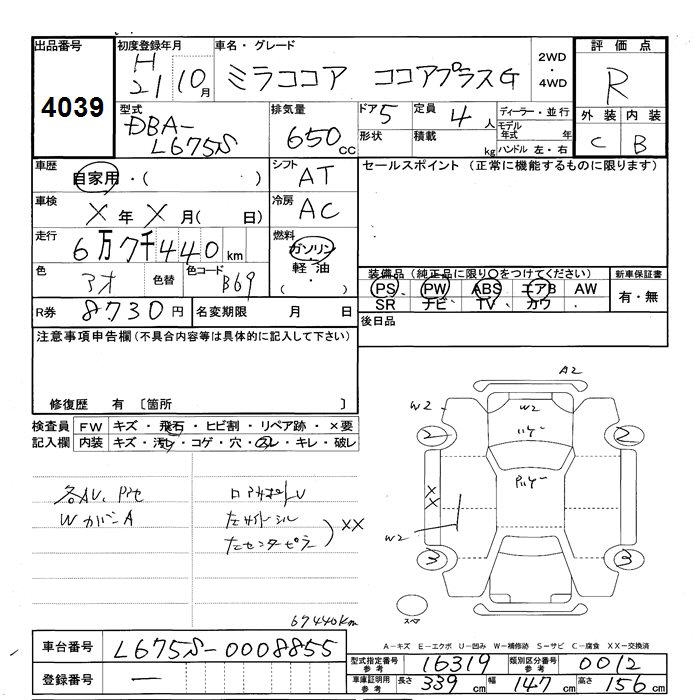 出品番号 初度登録年月 車名・グレード 2WD・4WD 評価点
4039 H21 10月 ミラココア ココアプラスG R
型式 DBA-L675S 排気量 650cc ドア5 定員 4人 ディーラー・並行
形状 積載 kg モデル年式 年 ハンドル 左・右
外装 内装
C B
車歴 自家用・( ) シフト AT セールスポイント (正常に機能するものに限ります)
車検 X年X月( 日) 冷房 AC
走行 6万7千440km 燃料 ガソリン 軽油 ( ・ )
色 アオ 色替 色コード B69
装備品 (純正品に限り○をつけてください) 新車保証書
PS PW ABS エアB AW 有・無
SR ナビ TV カワ ・
R券 8730円 名変期限 月 日 後日品
注意事項申告欄(不具合内容等は具体的に記入して下さい)
修復歴 有 〔箇所 〕
検査員 FW キズ・飛石・ヒビ割・リペア跡・×要
記入欄 内装 キズ・汚レ・コゲ・穴・スレ・キレ・破レ
A2
W2 W2
2 2
XX
W2
3 3
スペア
WカバーA
左サイドシル
XX
左センターピラー
67440km
A-キズ E-エクボ U-凹み W-補修跡 S-サビ C-腐食 XX-交換済
車台番号 L675S-0008855
型式指定番号 参考 16319 類別区分番号 参考 0012
登録番号 —
車庫証明用 参考 長さ 339cm 幅 147cm 高さ 156cm